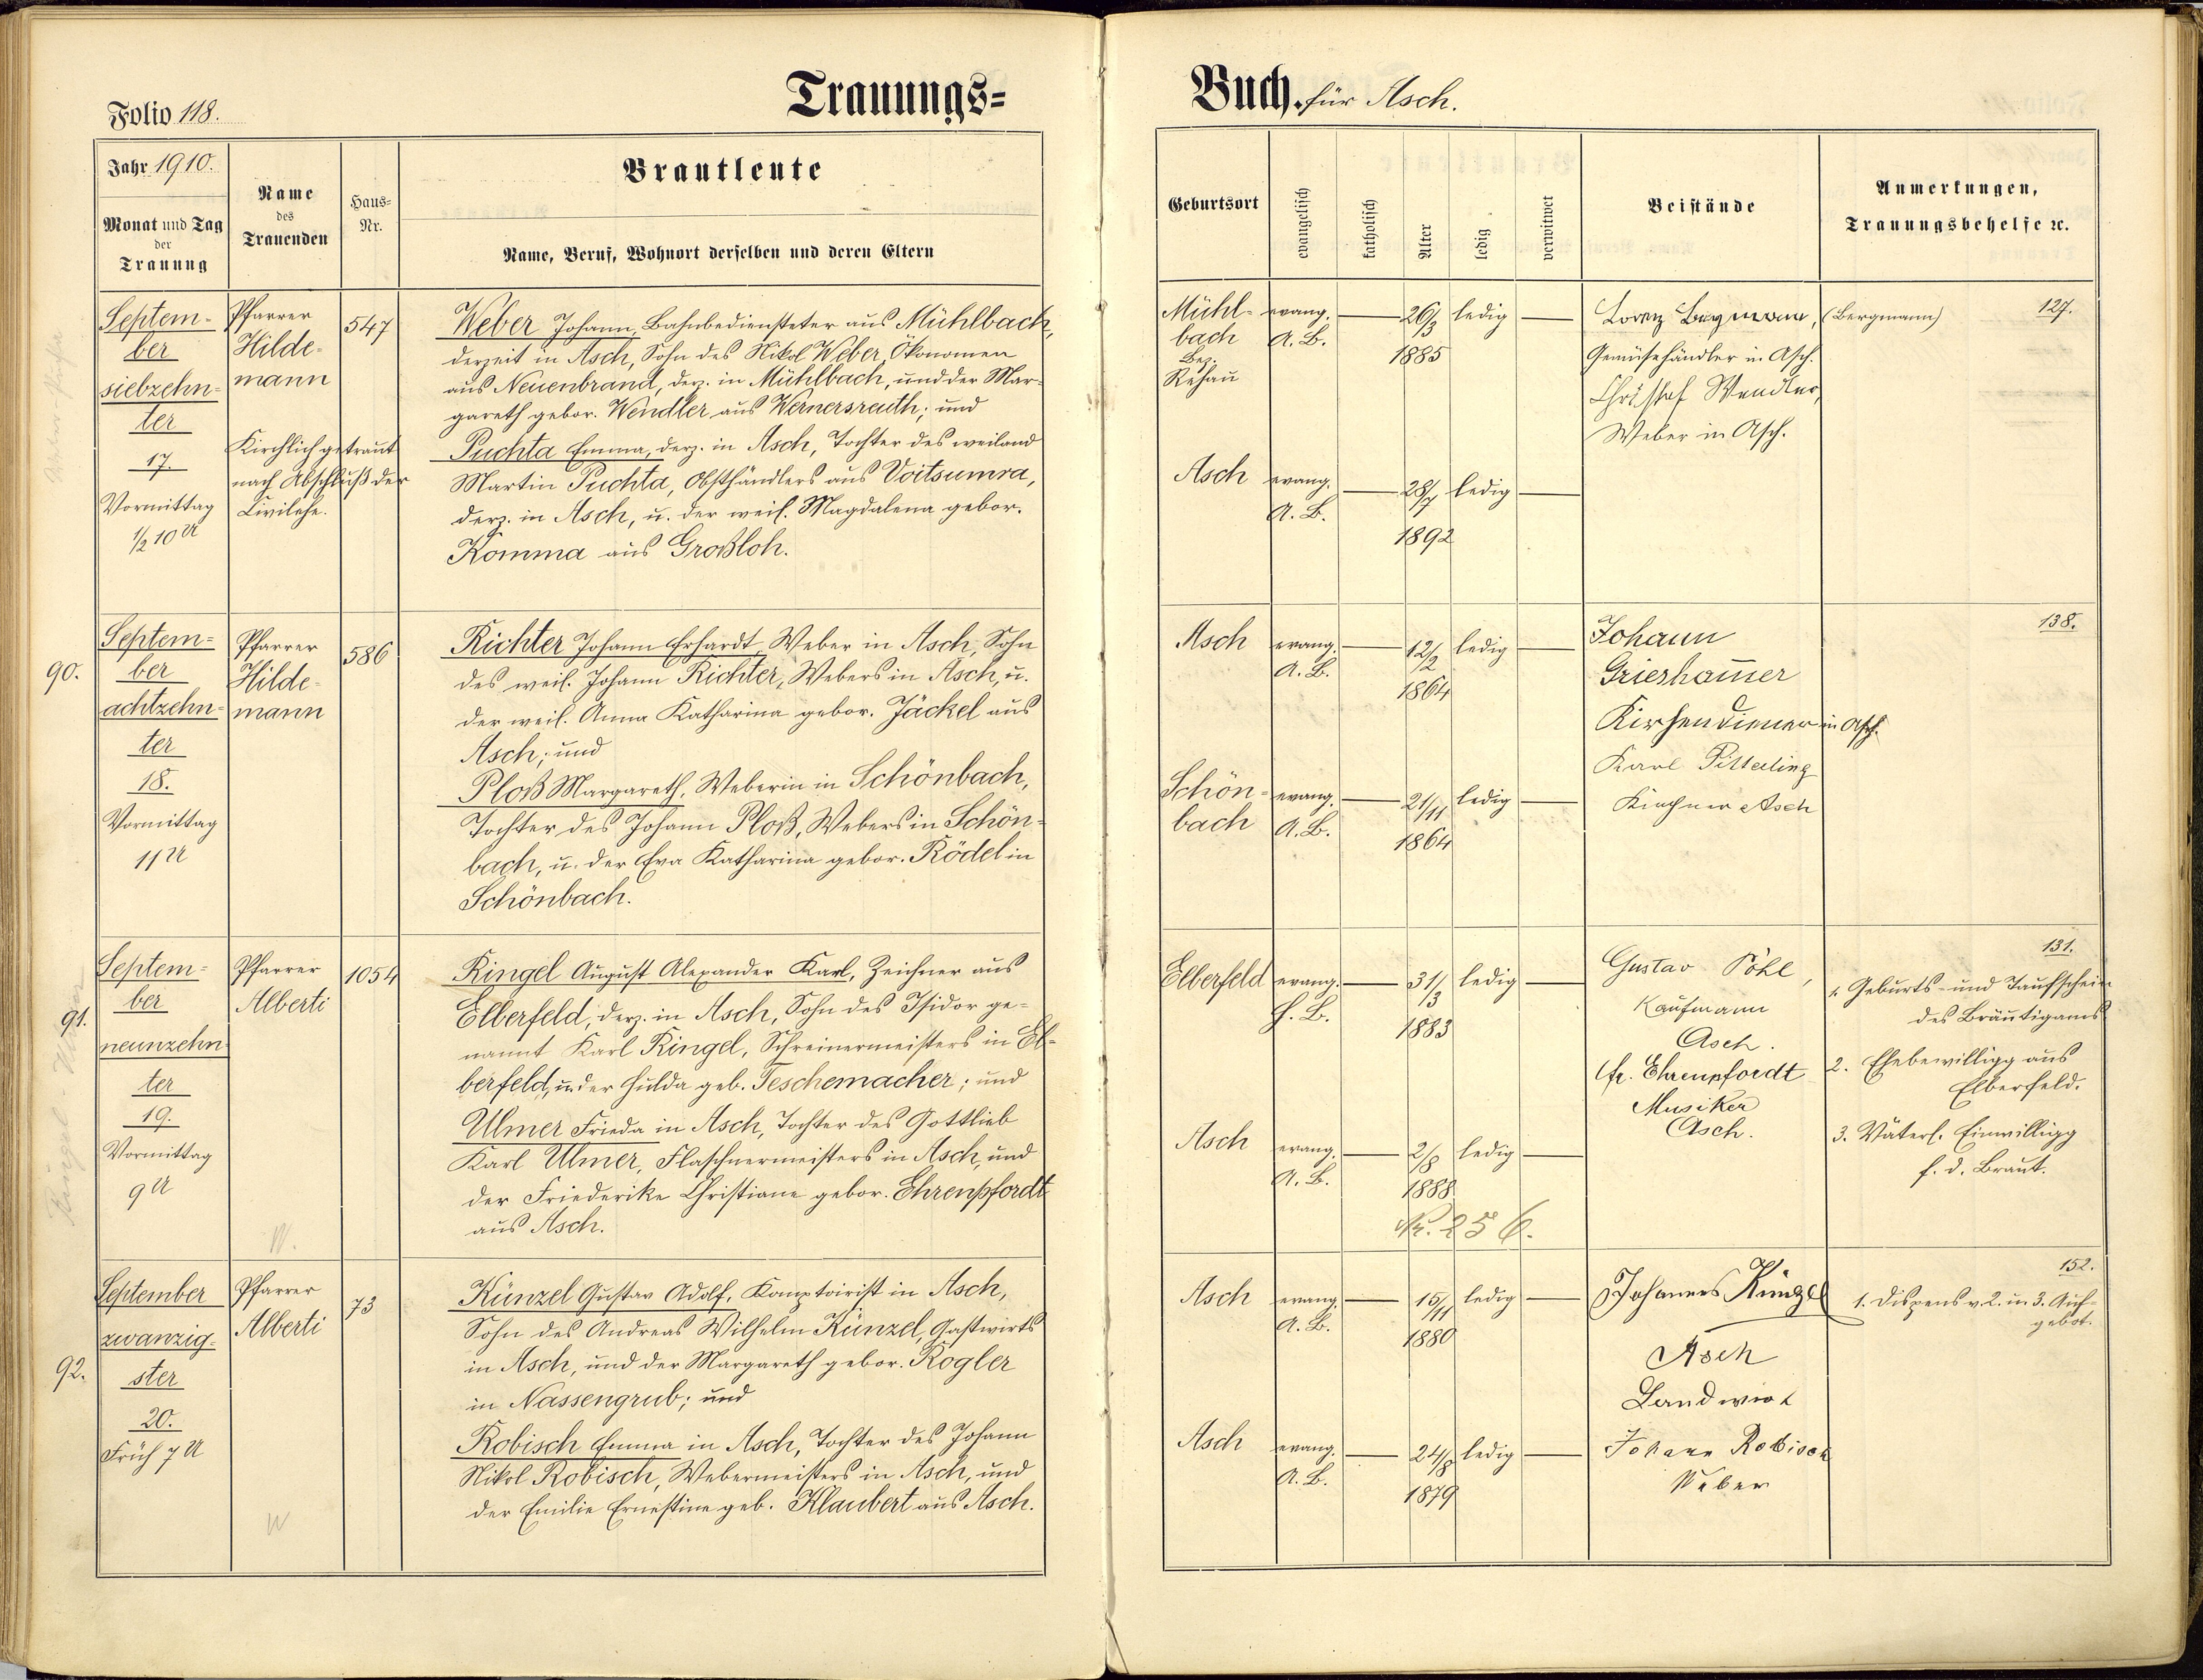 Folio 118.
Trauungs=
Jahr 1910.
Monat und Tag
der
Trauung
Name
des
Trauenden
Haus=
Nr.
Brautleute
Name, Beruf, Wohnort derselben und deren Eltern
Septem-
ber
siebzehn-
ter
17.
Vormittag
1/2 10 U
Pfarrer
Hilde-
mann
Kirchlich getraut
nach Abschluß der
Civilehe.
547
Weber Johann, Bahnbediensteter aus Mühlbach,
derzeit in Asch, Sohn des Nikol Weber, Ökonomen
aus Neuenbrand, derz. in Mühlbach, und der Mar-
gareth gebor. Wendler aus Wernersreuth; und
Puchta Emma, derz. in Asch, Tochter des weiland
Martin Puchta, Obsthändlers aus Voitsumra,
derz. in Asch, u. der weil. Magdalena gebor.
Komma aus Großloh.
90.
Septem=
ber
achtzehn=
ter
18.
Vormittag
11 U
Pfarrer
Hilde-
mann
586
Richter Johann Erhardt, Weber in Asch, Sohn
des weil. Johann Richter, Webers in Asch, u.
der weil. Anna Katharina gebor. Jäckel aus
Asch; und
Ploß Margareth, Weberin in Schönbach,
Tochter des Johann Ploß, Webers in Schön=
bach, u. der Eva Katharina gebor. Rödel in
Schönbach.
91.
Septem=
ber
neunzehn-
ter
19.
Vormittag
9 U
Pfarrer
Alberti
W.
1054
Ringel August Alexander Karl, Zeichner aus
Elberfeld, derz. in Asch, Sohn des Isidor ge-
nannt Karl Ringel, Schreinermeisters in El-
berfeld, u. der Hulda geb. Teschemacher; und
Ulmer Frieda in Asch, Tochter des Gottlieb
Karl Ulmer, Flaschnermeisters in Asch, und
der Friederike Christiane gebor. Ehrenpfordt
aus Asch.
92.
September
zwanzig-
ster
20.
Früh 7 U
Pfarrer
Alberti
W
73
Künzel Gustav Adolf, Komptoirist in Asch,
Sohn des Andreas Wilhelm Künzel, Gastwirts
in Asch, und der Margareth gebor. Rogler
in Nassengrub; und
Robisch Emma in Asch, Tochter des Johann
Nikol Robisch, Webermeisters in Asch, und
der Emilie Ernestine geb. Klaubert aus Asch.
Buch. für Asch.
Geburtsort
evangelisch
katholisch
Alter
ledig
verwitwet
Beistände
Anmerkungen,
Trauungsbehelfe ꝛc.
Mühl-
bach
Bez.
Rehau
evang.
A. B.
26/3
1885
ledig
Lorenz Bergmann, (Bergmann)
Gemüsehändler in Asch.
Christof Wendler,
Weber in Asch.
127.
Asch
evang.
A. B.
28/7
1892
ledig
Asch
evang.
A. B.
12/2
1864
ledig
Johann
Griesham̄er
Kirchendiener in Asch.
Karl Pitterling
Kirchner Asch
138.
Schön-
bach
evang.
A. B.
21/11
1864
ledig
Elberfeld
evang.
H. B.
31/3
1883
ledig
Gustav Pöhl,
Kaufmann
Asch.
Fr. Ehrenpfordt
Musiker
Asch.
131.
1. Geburts- und Taufschein
des Bräutigams
2. Ehebewilligg aus
Elberfeld.
3. Väterl. Einwilligg
f. d. Braut.
Asch
evang.
A. B.
2/8
1888
ledig
Nr. 256.
Asch
evang.
A. B.
15/11
1880
ledig
Johannes Künzel
Asch
Landwirt
Johann Robisch
Weber
152.
1. Dispens v. 2. u. 3. Auf-
gebot.
Asch
evang.
A. B.
24/8
1879
ledig